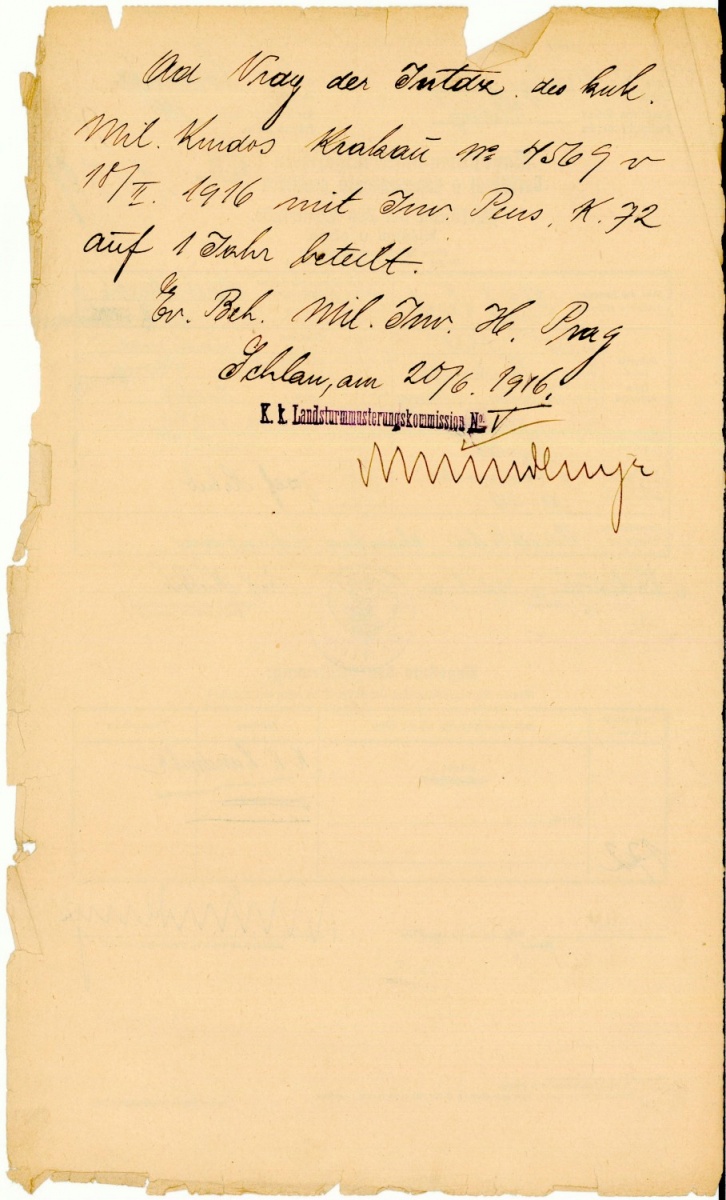 Ad Vrdg der Intdz. des kuk.
Mil. Kmdos Krakau No 4569 v
18/II. 1916 mit Inv. Pens. K. 72
auf 1 Jahr beteilt.
Ev. Beh. Mil. Inv. H. Prag
Schlan, am 20/6. 1916.
K. k. Landsturmmusterungskommission No. V